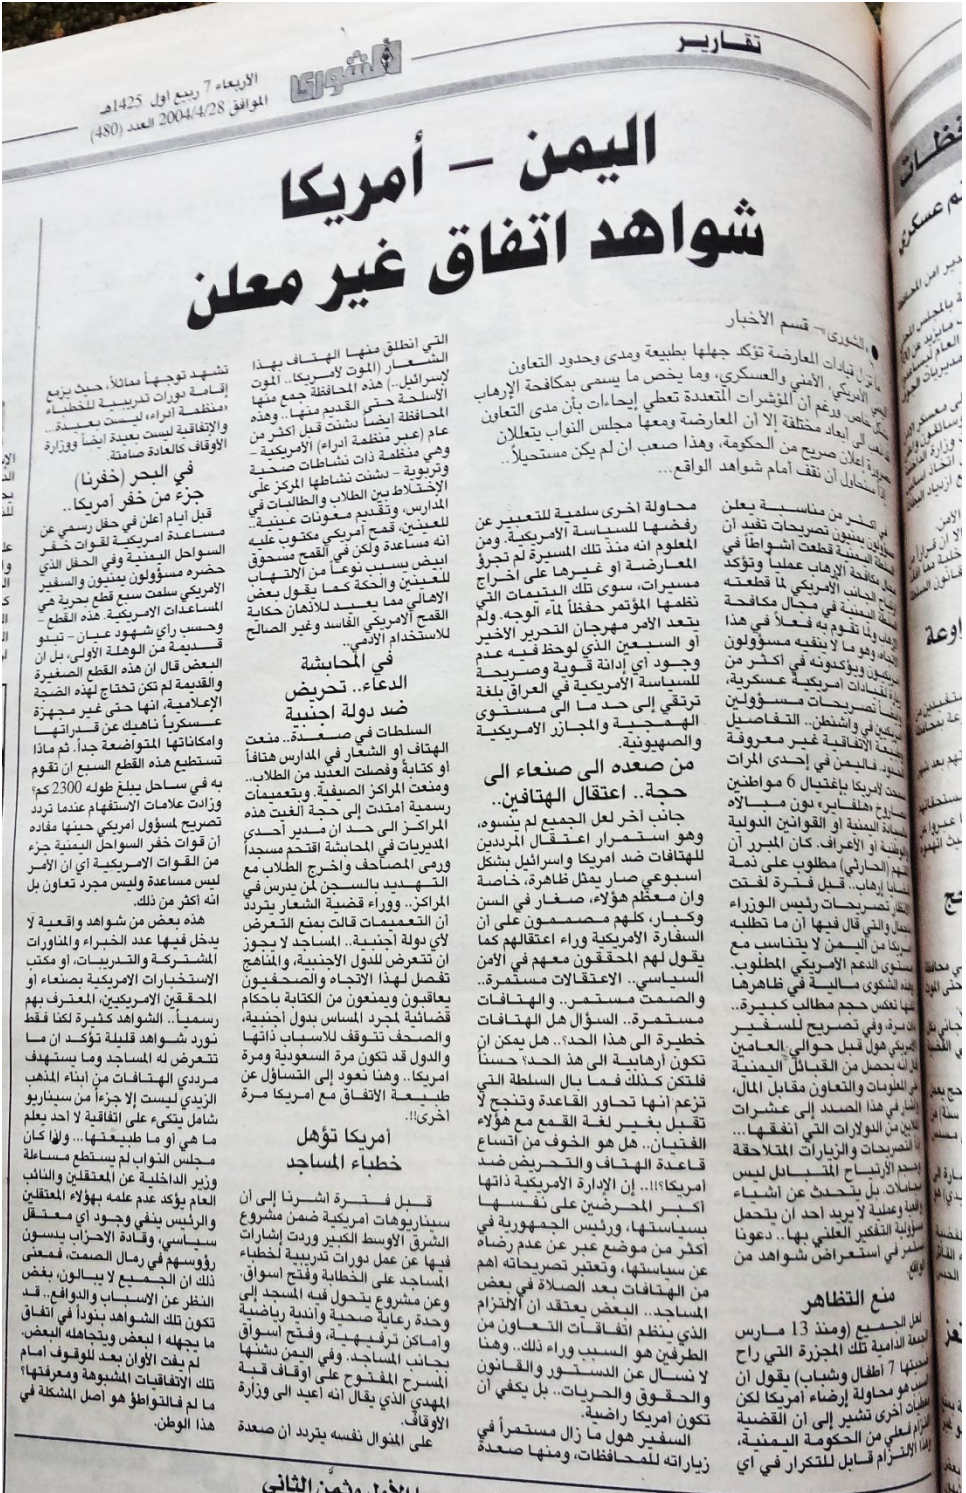 تقارير
الشورى
الأربعاء 7 ربيع اول 1425هـ
الموافق 2004/4/28 العدد (480)
اليمن - أمريكا
شواهد اتفاق غير معلن
● «الشورى» - قسم الأخبار
ما تزال قيادات المعارضة تؤكد جهلها بطبيعة ومدى وحدود التعاون
اليمني الأمريكي، الأمني والعسكري، وما يخص ما يسمى بمكافحة الإرهاب
بشكل خاص. ورغم أن المؤشرات المتعددة تعطي إيحاءات بأن مدى التعاون
ذهب الى ابعاد مختلفة إلا أن المعارضة ومعها مجلس النواب يتعللان
بضرورة إعلان صريح من الحكومة، وهذا صعب أن لم يكن مستحيلاً..
لذا سنحاول أن نقف أمام شواهد الواقع...
في اكثر من مناسبة يعلن
مسؤولون يمنيون تصريحات تفيد أن
السلطة اليمنية قطعت أشواطاً في
مجال مكافحة الإرهاب عملياً وتؤكد
الجانب الأمريكي لما قطعته
السلطة اليمنية في مجال مكافحة
الإرهاب ولما تقوم به فعلاً في هذا
الاتجاه، وهو ما لا ينفيه مسؤولون
أمريكيون ويؤكدونه في أكثر من
زيارة لقيادات امريكية عسكرية،
وأيضاً تصريحات مسؤولين
أمريكيين في واشنطن.. التفاصيل
لطبيعة الاتفاقية غير معروفة
الحدود. فاليمن في إحدى المرات
سمحت لأمريكا بإغتيال 6 مواطنين
بصاروخ «هلفاير» دون مبالاه
بالسيادة اليمنية او القوانين الدولية
والوطنية او الأعراف. كان المبرر أن
المتهم (الحارثي) مطلوب على ذمة
قضايا إرهاب.. قبل فترة لفتت
الأنظار تصريحات رئيس الوزراء
باجمال والتي قال فيها أن ما تطلبه
أمريكا من اليمن لا يتناسب مع
مستوى الدعم الأمريكي المطلوب.
وهذه الشكوى مالية في ظاهرها
لكنها تعكس حجم مطالب كبيرة..
ذات مرة، وفي تصريح للسفير
الأمريكي هول قبل حوالي العامين
قال أنه يحصل من القبائل اليمنية
على المعلومات والتعاون مقابل المال،
وأشار في هذا الصدد إلى عشرات
الملايين من الدولارات التي انفقها...
إذاً التصريحات والزيارات المتلاحقة
وحجم الأرتياح المتبادل ليس
مجاملات. بل يتحدث عن أشياء
واقعية وعملية لا يريد أحد ان يتحمل
مسؤولية التفكير العلني بها.. دعونا
نستمر في استعراض شواهد من
الواقع.
منع التظاهر
لعل الجميع (ومنذ 13 مارس
الجمعة الدامية تلك المجزرة التي راح
ضحيتها 7 أطفال وشباب) يقول أن
السبب هو محاولة إرضاء أمريكا لكن
معطيات أخرى تشير إلى أن القضية
التزام فعلي من الحكومة اليمنية،
وهذا الالتزام قابل للتكرار في اي
محاولة أخرى سلمية للتعبير عن
رفضها للسياسة الأمريكية. ومن
المعلوم انه منذ تلك المسيرة لم تجرؤ
المعارضة او غيرها على اخراج
مسيرات، سوى تلك اليتيمات التي
نظمها المؤتمر حفظاً لماء الوجه. ولم
يتعد الأمر مهرجان التحرير الأخير
أو السبعين الذي لوحظ فيه عدم
وجود أي إدانة قوية وصريحة
للسياسة الأمريكية في العراق بلغة
ترتقي إلى حد ما الى مستوى
الهمجية والمجازر الأمريكية
والصهيونية.
من صعده الى صنعاء الى
حجة.. اعتقال الهتافين..
جانب آخر لعل الجميع لم ينسوه،
وهو استمرار اعتقال المرددين
للهتافات ضد امريكا واسرائيل بشكل
أسبوعي صار يمثل ظاهرة، خاصة
وان معظم هؤلاء، صغار في السن
وكبار، كلهم مصممون على أن
السفارة الأمريكية وراء اعتقالهم كما
يقول لهم المحققون معهم في الأمن
السياسي.. الاعتقالات مستمرة..
والصمت مستمر.. والهتافات
مستمرة.. السؤال هل الهتافات
خطيرة الى هذا الحد؟.. هل يمكن ان
تكون أرهابية الى هذ الحد؟ حسناً
فلتكن كذلك فما بال السلطة التي
تزعم أنها تحاور القاعدة وتنجح لا
تقبل بغير لغة القمع مع هؤلاء
الفتيان.. هل هو الخوف من أتساع
قاعدة الهتاف والتحريض ضد
أمريكا؟!!.. إن الإدارة الأمريكية ذاتها
أكبر المحرضين على نفسها
بسياستها، ورئيس الجمهورية في
أكثر من موضع عبر عن عدم رضاه
عن سياستها، وتعتبر تصريحاته أهم
من الهتافات بعد الصلاة في بعض
المساجد.. البعض يعتقد ان الألتزام
الذي ينظم إتفاقات التعاون من
الطرفين هو السبب وراء ذلك.. وهنا
لا نسأل عن الدستور والقانون
والحقوق والحريات.. بل يكفي أن
تكون أمريكا راضية.
السفير هول ما زال مستمراً في
زياراته للمحافظات، ومنها صعدة
التي أنطلق منها الهتاف بهذا
الشعار (الموت لأمريكا.. الموت
لإسرائيل..) هذه المحافظة جمع منها
الأسلحة حتى القديم منها.. وهذه
المحافظة ايضاً دشنت قبل أكثر من
عام (عبر منظمة ادراء) الأمريكية -
وهي منظمة ذات نشاطات صحية
وتربوية - دشنت نشاطها المركز على
الإختلاط بين الطلاب والطالبات في
المدارس، وتقديم معونات عينية..
للعينين، قمح أمريكي مكتوب عليه
انه مساعدة ولكن في القمح مسحوق
ابيض يسبب نوعاً من الالتهاب
للعينين والحكة كما يقول بعض
الأهالي مما يعيد للأذهان حكاية
القمح الأمريكي الفاسد وغير الصالح
للاستخدام الأدمي..
في المحابشة
الدعاء.. تحريض
ضد دولة اجنبية
السلطات في صعدة.. منعت
الهتاف أو الشعار في المدارس هتافاً
أو كتابة وفصلت العديد من الطلاب..
ومنعت المراكز الصيفية. وبتعميمات
رسمية أمتدت إلى حجة ألغيت هذه
المراكز الى حد ان مدير أحدى
المديريات في المحابشة اقتحم مسجداً
ورمى المصاحف وأخرج الطلاب مع
التهديد بالسجن لمن يدرس في
المراكز.. ووراء قضية الشعار يتردد
أن التعميمات قالت بمنع التعرض
لأي دولة أجنبية.. المساجد لا يجوز
ان تتعرض للدول الأجنبية، والمناهج
تفصل لهذا الاتجاه والصحفيون
يعاقبون ويمنعون من الكتابة باحكام
قضائية لمجرد المساس بدول أجنبية،
والصحف تتوقف للأسباب ذاتها
والدول قد تكون مرة السعودية ومرة
امريكا.. وهنا نعود إلى التساؤل عن
طبيعة الاتفاق مع أمريكا مرة
أخرى!!.
أمريكا تؤهل
خطباء المساجد
قبل فترة اشرنا إلى أن
سيناريوهات أمريكية ضمن مشروع
الشرق الأوسط الكبير وردت إشارات
فيها عن عمل دورات تدريبية لخطباء
المساجد على الخطابة وفتح أسواق.
وعن مشروع يتحول فيه المسجد إلى
وحدة رعاية صحية وأندية رياضية
وأماكن ترفيهية، وفتح أسواق
بجانب المساجد. وفي اليمن دشنها
المسرح المفتوح على أوقاف قبة
المهدي الذي يقال أنه أعيد الى وزارة
الأوقاف.
على المنوال نفسه يتردد ان صعدة
تشهد توجهاً مماثلاً، حيث يزمع
إقامة دورات تدريبية للخطباء
«منظمة ادراء» ليست بعيدة...
والإتفاقية ليست بعيدة ايضاً ووزارة
الأوقاف كالعادة صامتة.
في البحر (خفرنا)
جزء من خفر أمريكا..
قبل أيام أعلن في حفل رسمي عن
مساعدة امريكية لقوات خفر
السواحل اليمنية وفي الحفل الذي
حضره مسؤولون يمنيون والسفير
الأمريكي سلمت سبع قطع بحرية هي
المساعدات الامريكية. هذه القطع -
وحسب رأي شهود عيان - تبدو
قديمة من الوهلة الأولى، بل ان
البعض قال ان هذه القطع الصغيرة
والقديمة لم تكن تحتاج لهذه الضجة
الإعلامية، انها حتى غير مجهزة
عسكرياً ناهيك عن قدراتها
وامكاناتها المتواضعة جداً. ثم ماذا
تستطيع هذه القطع السبع ان تقوم
به في ساحل يبلغ طوله 2300 كم؟
وزادت علامات الاستفهام عندما تردد
تصريح لمسؤول أمريكي حينها مفاده
ان قوات خفر السواحل اليمنية جزء
من القوات الامريكية أي ان الأمر
ليس مساعدة وليس مجرد تعاون بل
انه أكثر من ذلك.
هذه بعض من شواهد واقعية لا
يدخل فيها عدد الخبراء والمناورات
المشتركة والتدريبات، او مكتب
الاستخبارات الامريكية بصنعاء او
المحققين الامريكيين، المعترف بهم
رسمياً.. الشواهد كثيرة لكنا فقط
نورد شواهد قليلة تؤكد ان ما
تتعرض له المساجد وما يستهدف
مرددي الهتافات من أبناء المذهب
الزيدي ليست إلا جزءاً من سيناريو
شامل يتكىء على اتفاقية لا احد يعلم
ما هي أو ما طبيعتها... واذا كان
مجلس النواب لم يستطع مساءلة
وزير الداخلية عن المعتقلين والنائب
العام يؤكد عدم علمه بهؤلاء المعتقلين
والرئيس ينفي وجود أي معتقل
سياسي، وقادة الاحزاب يدسون
رؤوسهم في رمال الصمت، فمعنى
ذلك ان الجميع لا يبالون، بغض
النظر عن الاسباب والدوافع.. قد
تكون تلك الشواهد بنوداً في اتفاق
ما يجهله البعض ويتجاهله البعض.
لم يفت الأوان بعد للوقوف امام
تلك الاتفاقيات المشبوهة ومعرفتها؟
ما لم فالتواطؤ هو أصل المشكلة في
هذا الوطن.